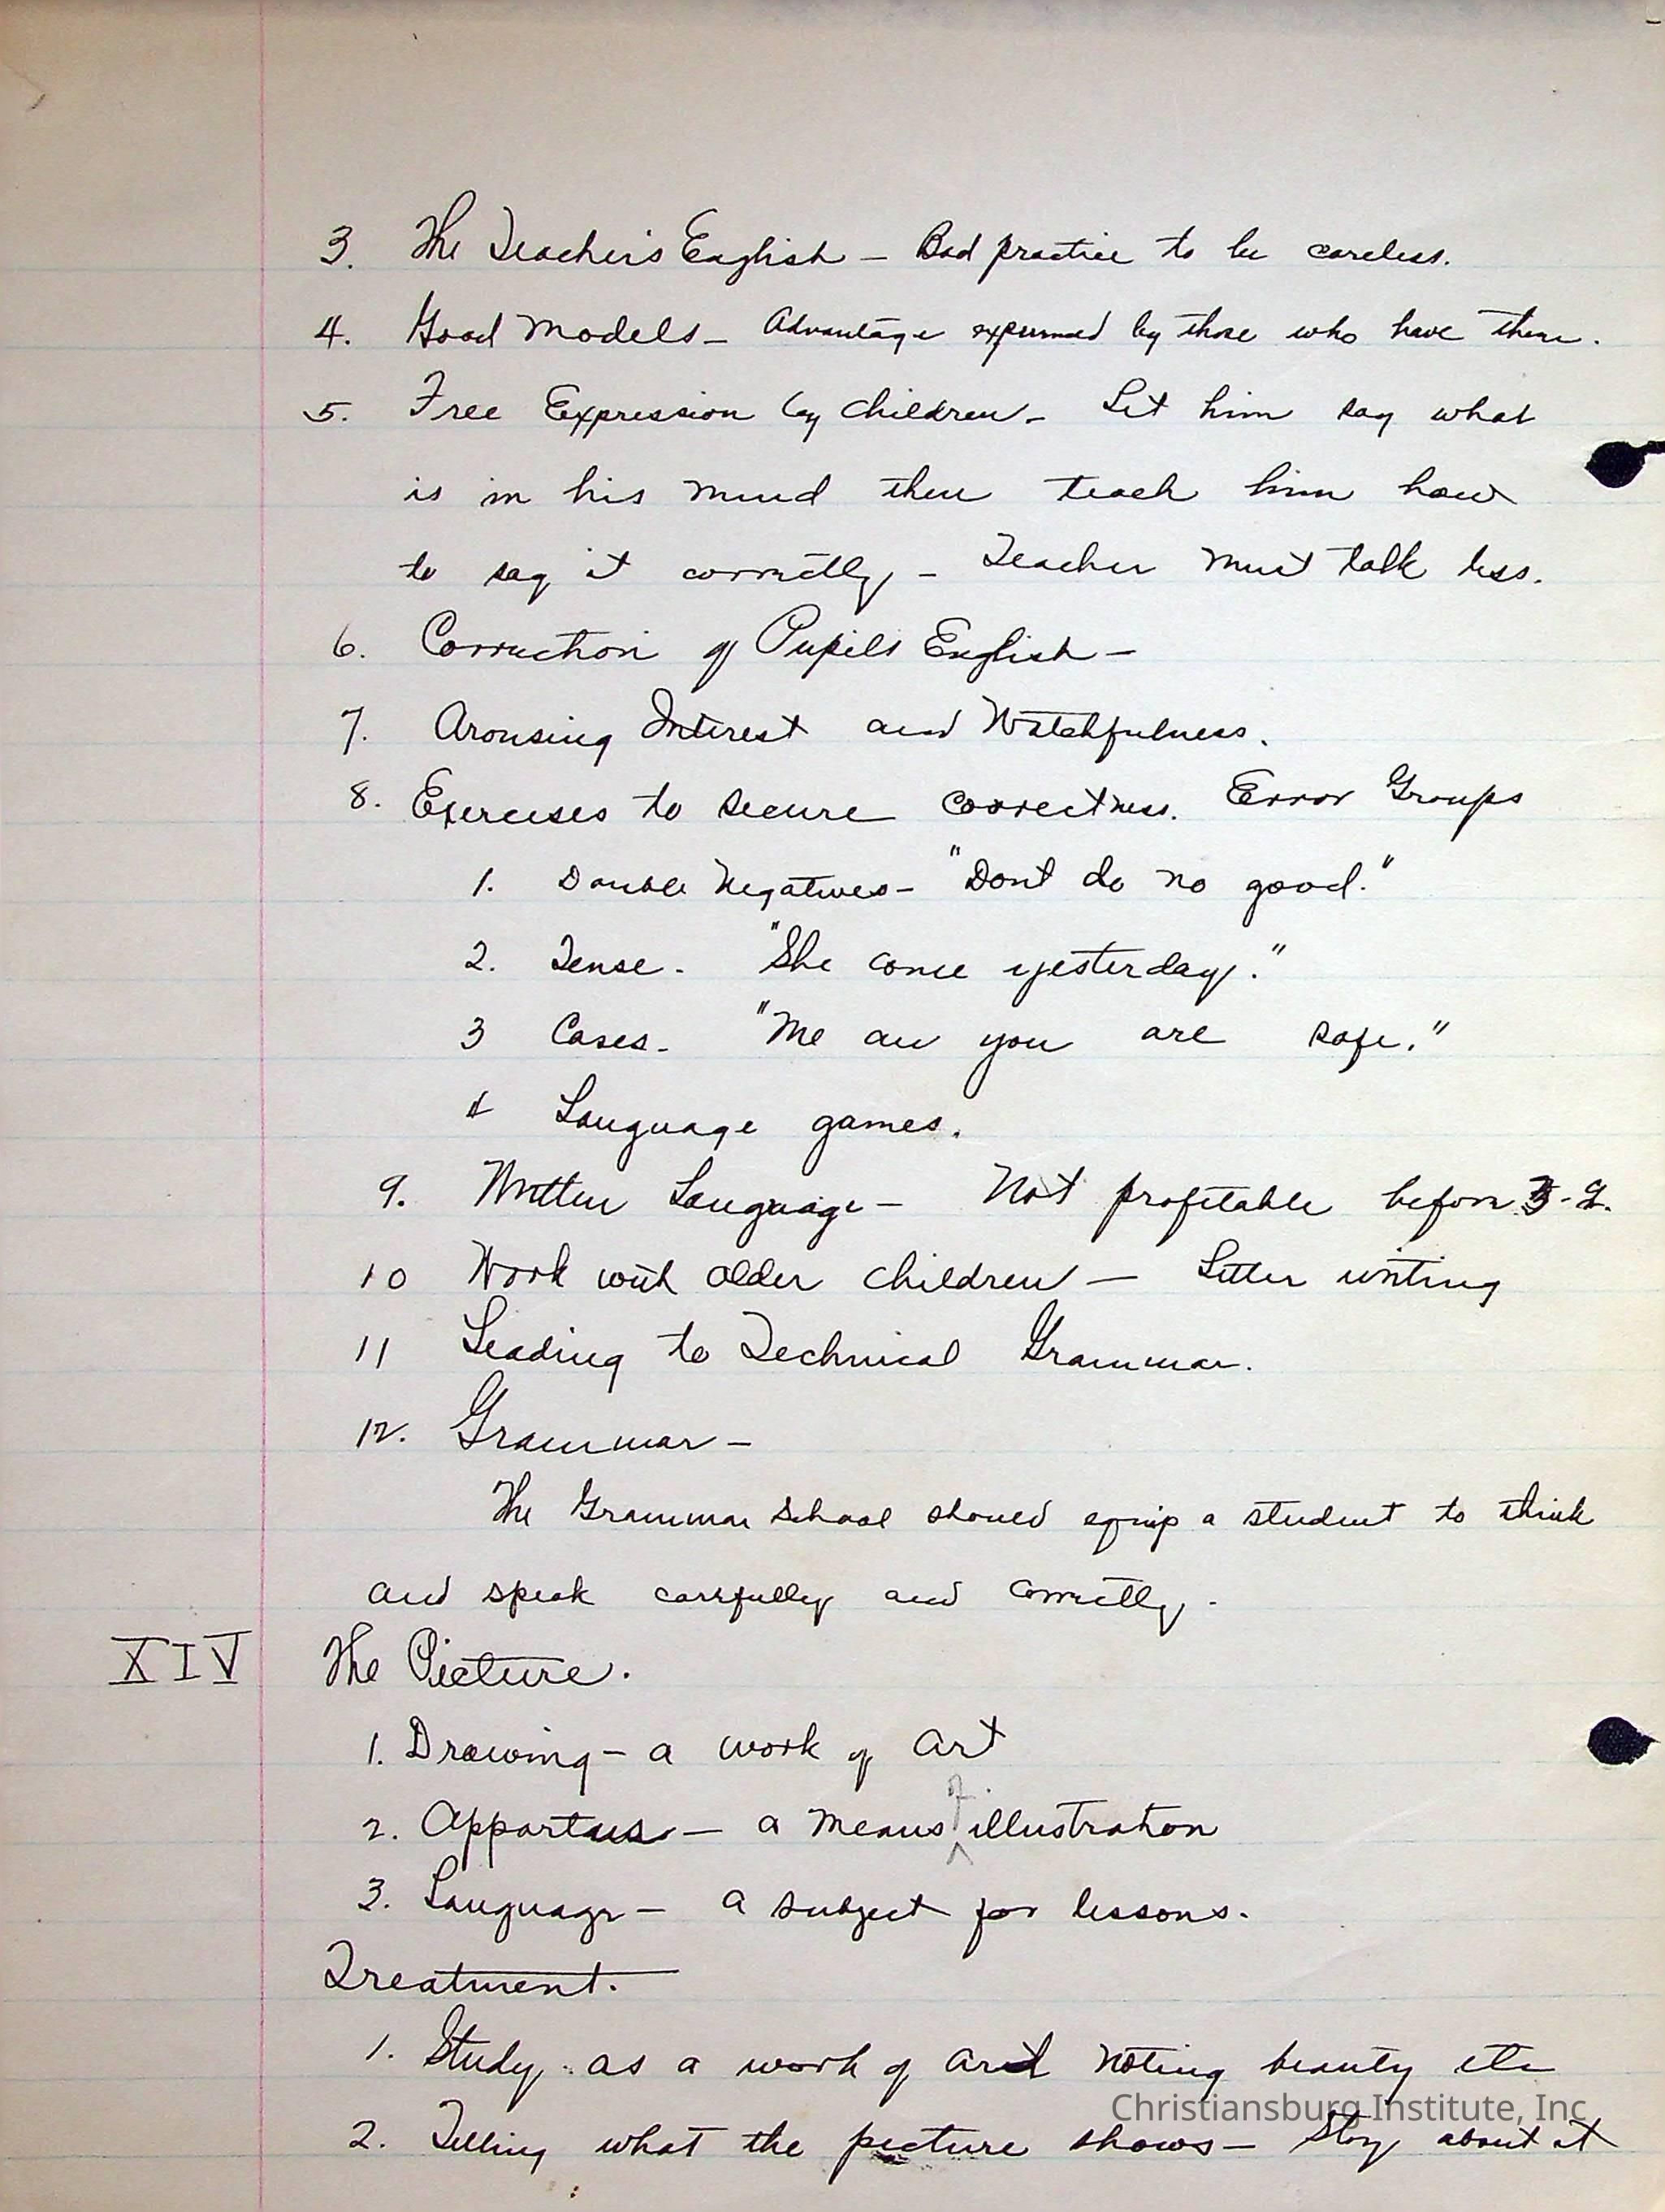 3. The Teacher's English — Bad practice to be careless.
4. Good Models — Advantage expressed by those who have them.
5. Free Expression by Children — Let him say what
is in his mind then teach him how
to say it correctly — Teacher must talk less.
6. Correction of Pupils English —
7. Arousing Interest and Watchfulness.
8. Exercises to secure correctness. Error Groups
1. Double Negatives — "Dont do no good."
2. Tense. "She come yesterday."
3 Cases. "Me an you are safe."
4 Language games.
9. Written Language — Not profitable before 3-g.
10 Work with older children — Letter writing
11 Leading to Technical Grammar.
12. Grammar —
The Grammar School should equip a student to think
and speak carefully and correctly.
XIV The Picture.
1. Drawing — a work of art
2. Appartus — a means of illustration
3. Language — a subject for lessons.
Treatment.
1. Study as a work of art noting beauty etc
Christiansburg Institute, Inc
2. Telling what the picture shows — Story about it